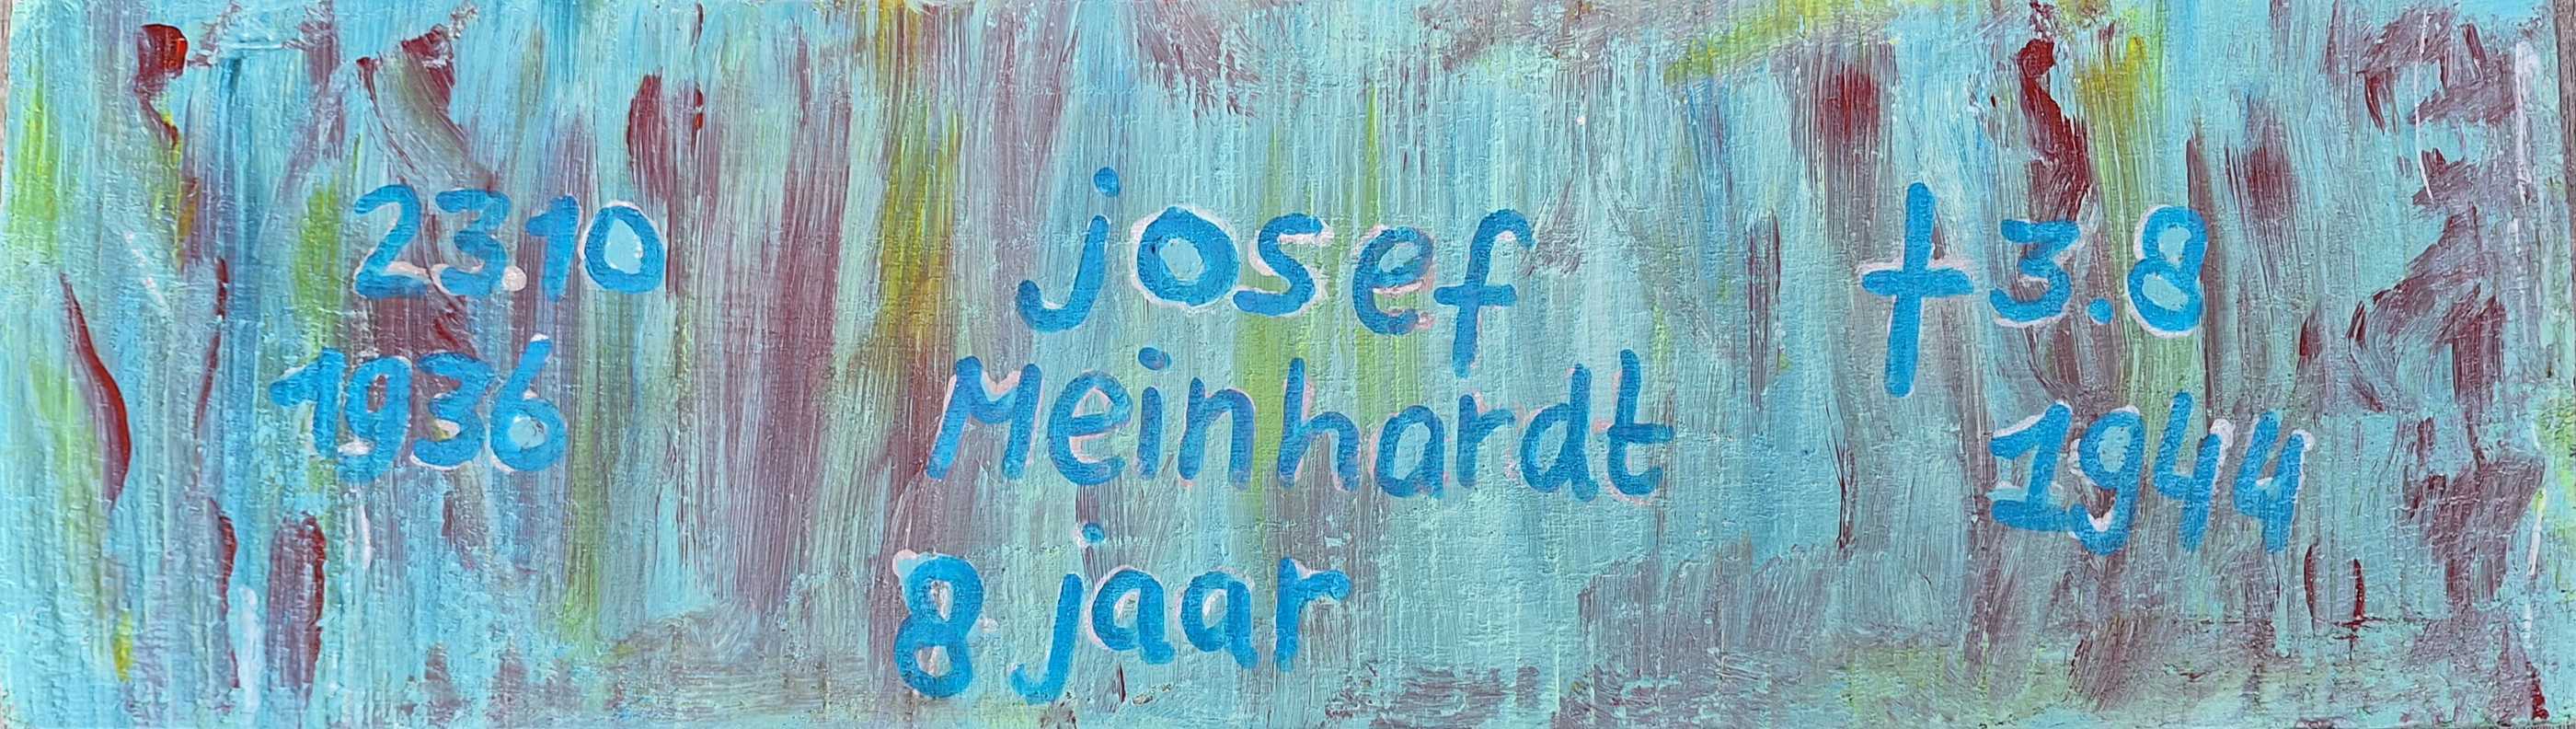 23.10
1936
josef
Meinhardt
8 jaar
†3.8
1944